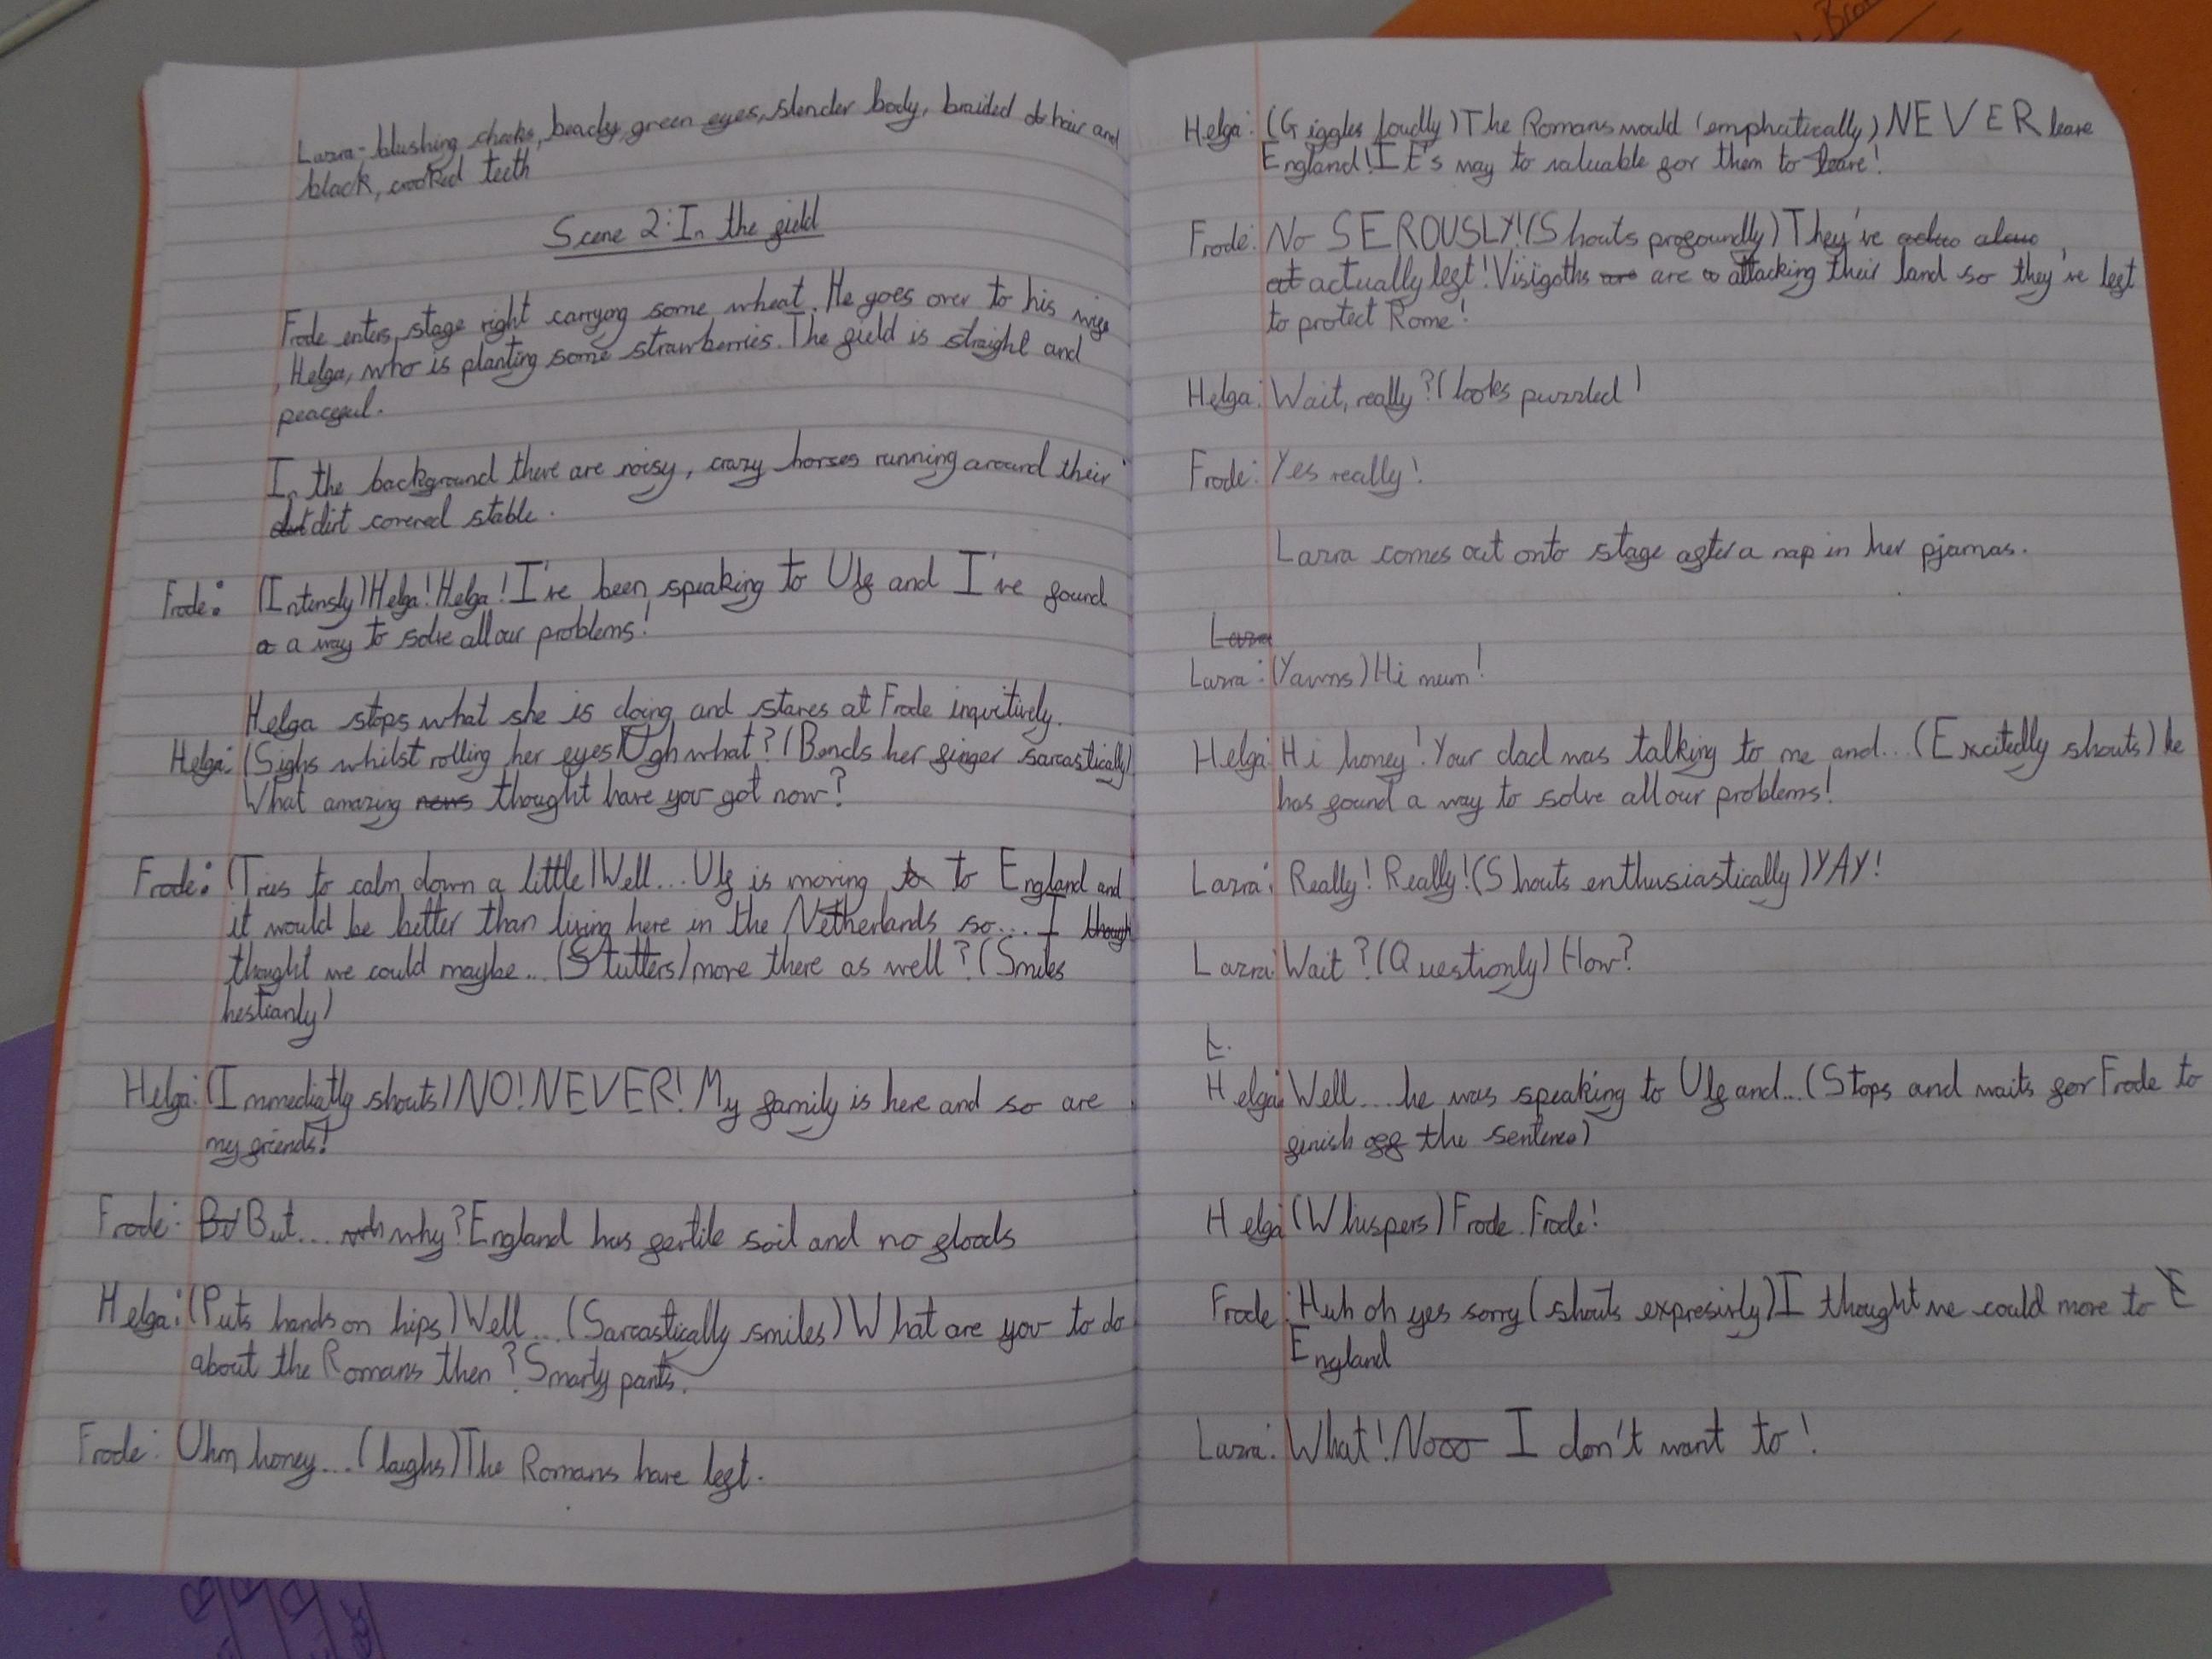 Lazra- blushing cheeks, beady, green eyes, slender body, braided hair and
black, crooked teeth
Scene 2: In the field
Frode enters, stage right carryong some wheat. He goes over to his wife
, Helga, who is planting some strawberries. The field is straight and
peaceful.
In the background there are noisy, crazy horses running around their
dirt covered stable.
Frode: (Intensly) Helga! Helga! I've been speaking to Ulf and I've found
a way to solve all our problems!
Helga stops what she is doing and stares at Frode inquitively.
Helga: (Sighs whilst rolling her eyes) Ugh what? (Bends her finger sarcastically)
What amazing news thought have you got now?
Frode: (Tries to calm down a little) Well... Ulf is moving to to England and
it would be better than living here in the Netherlands so... I though
thought we could maybe... (Stutters) move there as well? (Smiles
hestianly)
Helga: (Immediatly shouts) NO! NEVER! My family is here and so are
my friends!
Frode: But But... wh why? England has fertile soil and no floods
Helga: (Puts hands on hips) Well... (Sarcastically smiles) What are you to do
about the Romans then? Smarty pants.
Frode: Uhm honey... (laughs) The Romans have left.
Helga: (Giggles loudly) The Romans would (emphatically) NEVER leave
England! It's way to valuable for them to leave!
Frode: No SEROUSLY! (Shouts profoundly) They've
at actually left! Visigoths are are attacking their land so they've left
to protect Rome!
Helga: Wait, really? (looks puzzled)
Frode: Yes really!
Lazra comes out onto stage after a nap in her pjamas.
Lazra
Lazra: (Yawns) Hi mum!
Helga: Hi honey! Your dad was talking to me and... (Excitedly shouts) he
has found a way to solve all our problems!
Lazra: Really! Really! (Shouts enthusiastically) YAY!
Lazra: Wait? (Questionly) How?
Helga: Well... he was speaking to Ulf and... (Stops and waits for Frode to
finish off the sentence)
Helga: (Whispers) Frode. Frode!
Frode: Huh oh yes sorry (shouts expresivly) I thought we could move to E
England
Lazra: What! Nooo I don't want to!